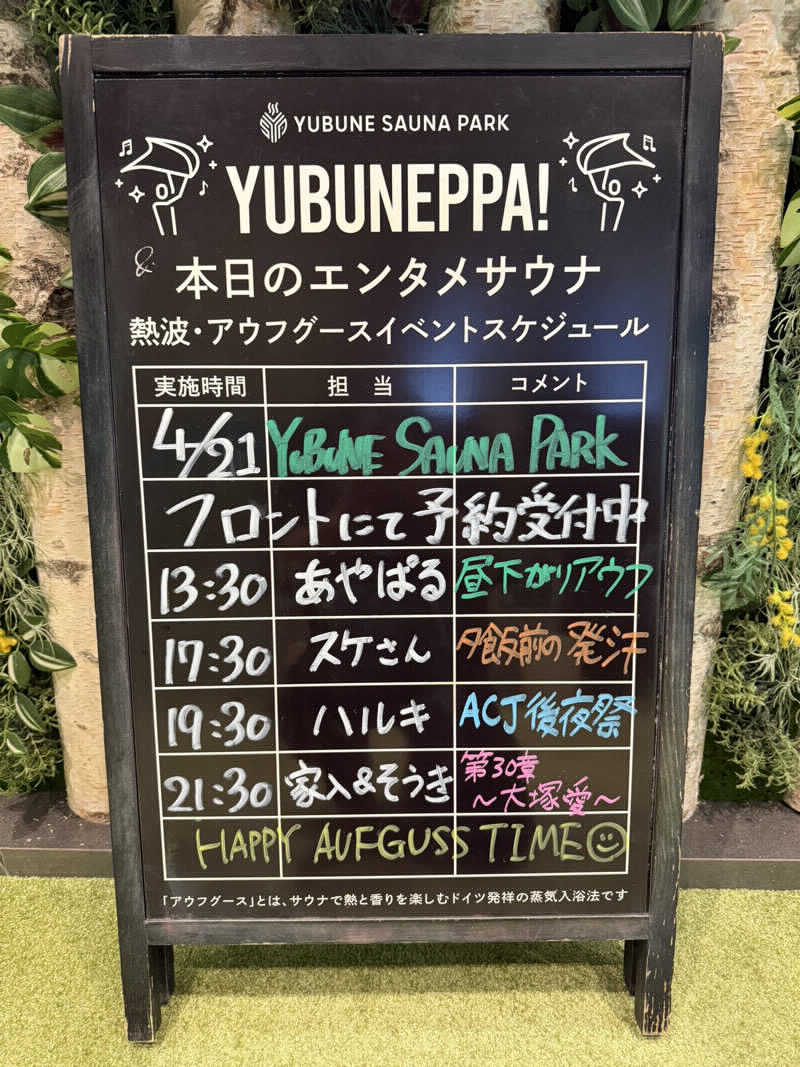 YUBUNE SAUNA PARK
YUBUNEPPA!
& 本日のエンタメサウナ
熱波・アウフグースイベントスケジュール
実施時間 担当 コメント
4/21 YUBUNE SAUNA PARK
フロントにて予約受付中
13:30 あやぱる 昼下がりアウフ
17:30 スケさん 夕飯前の発汗
19:30 ハルキ ACJ後夜祭
21:30 家入&そうき 第30章
～大塚愛～
HAPPY AUFGUSS TIME☺
「アウフグース」とは、サウナで熱と香りを楽しむドイツ発祥の蒸気入浴法です